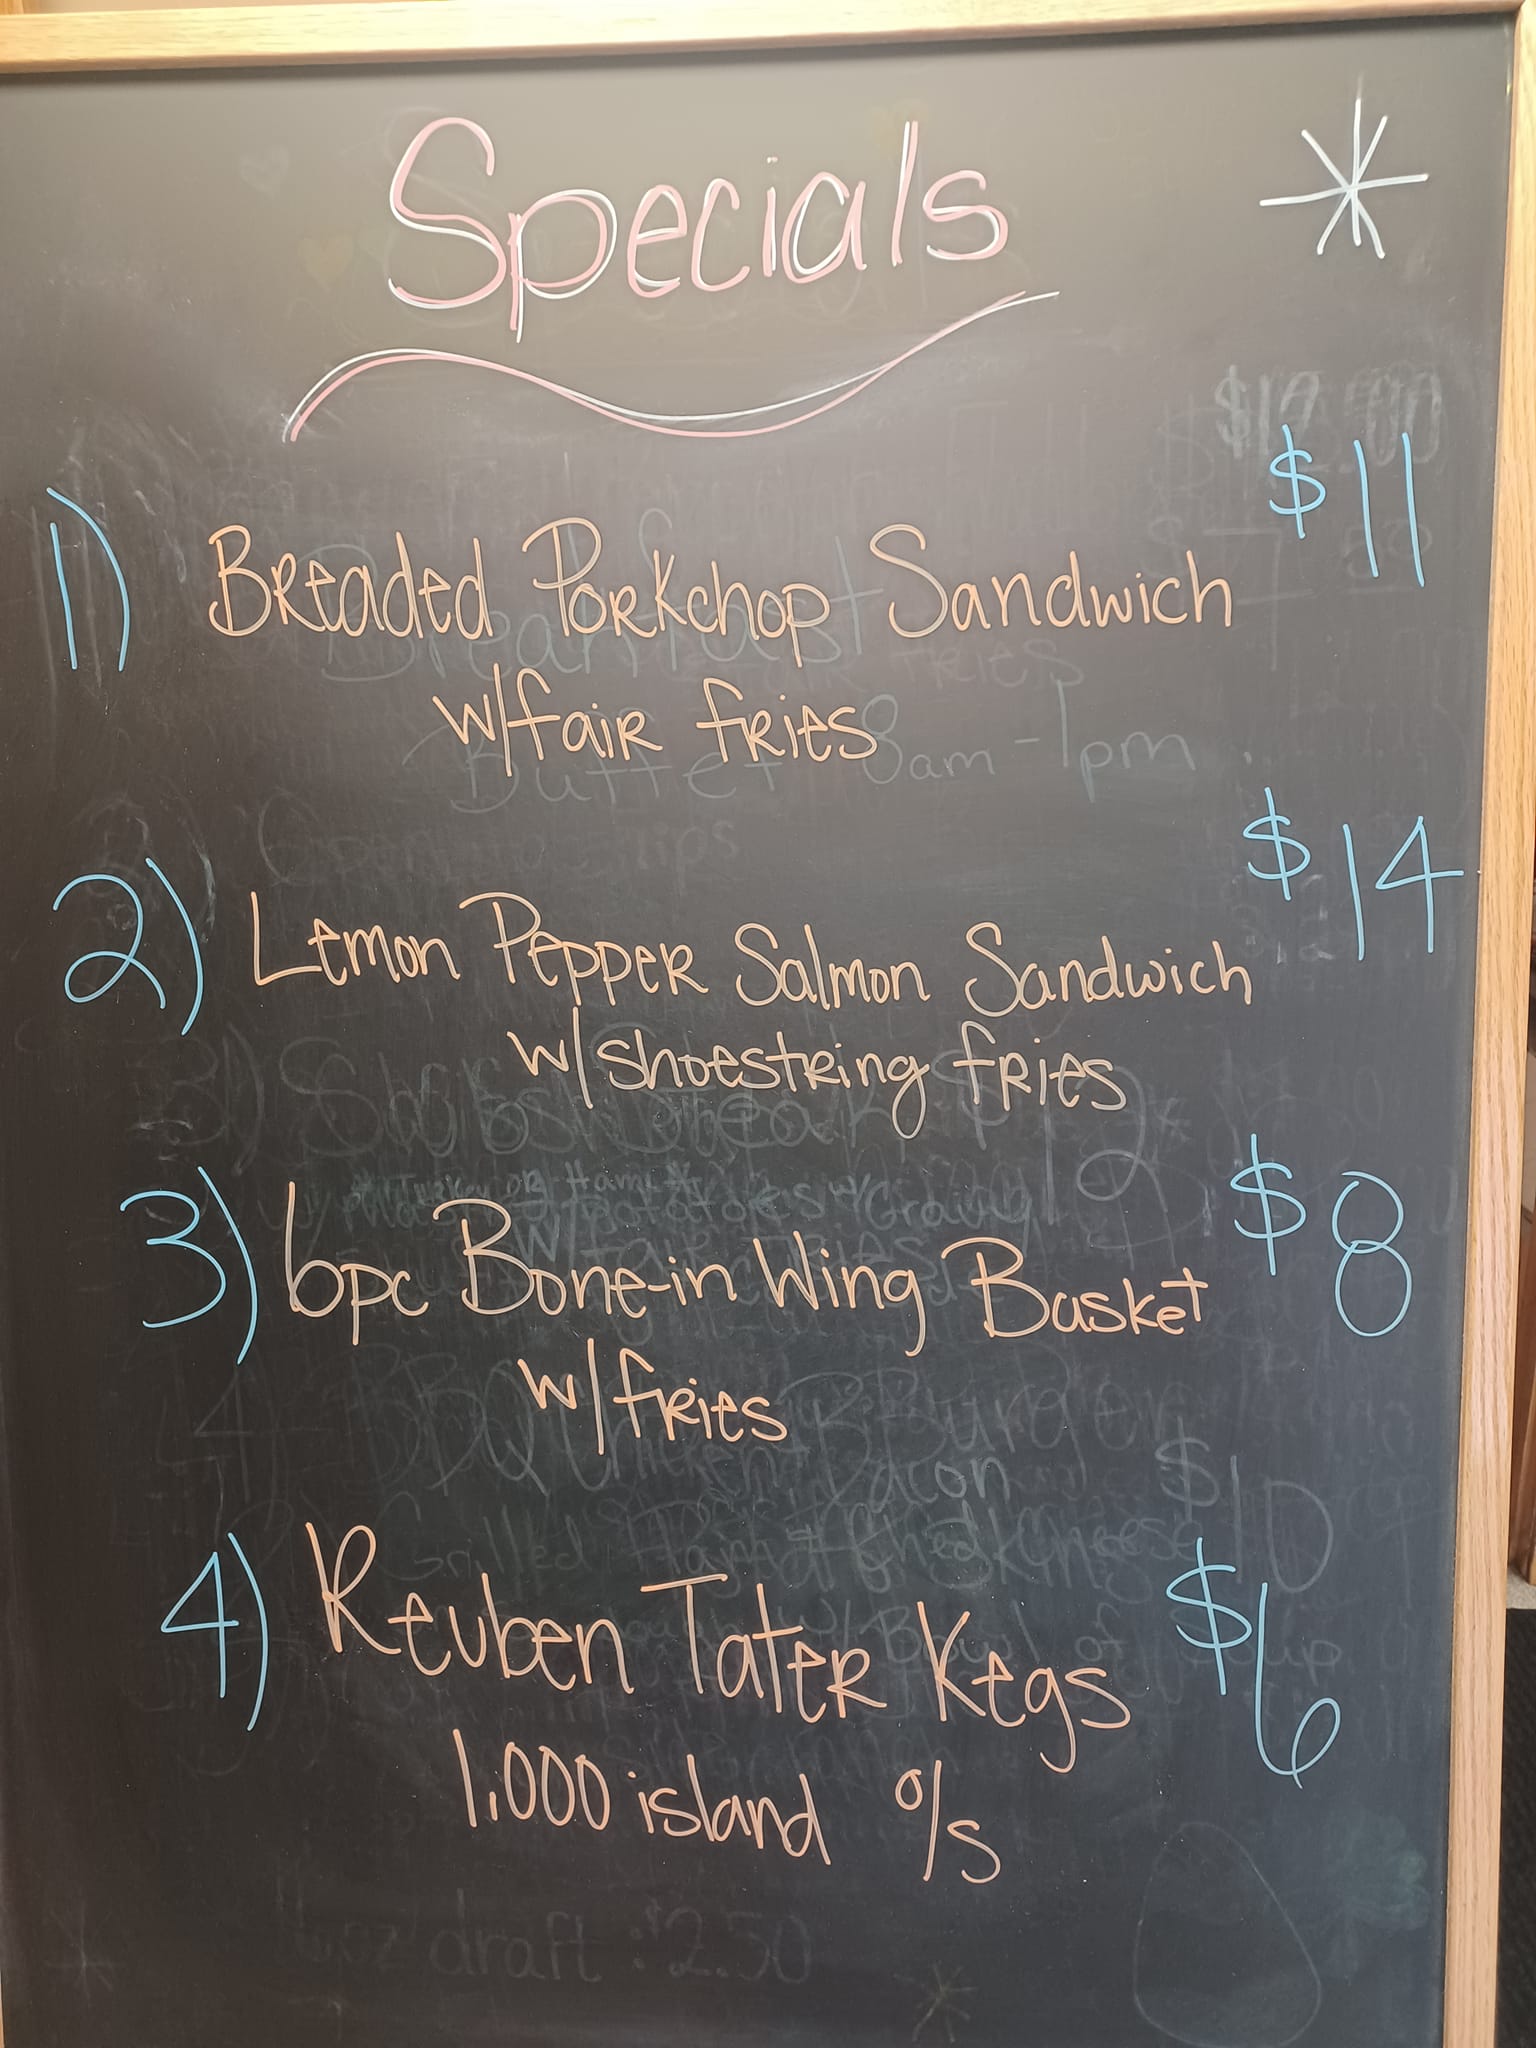 Specials
$11
1) Breaded Porkchop Sandwich
w/fair fries
$14
2) Lemon Pepper Salmon Sandwich
w/shoestring fries
$8
3) 6pc Bone-in Wing Basket
w/fries
4) Reuben Tater Kegs $6
1,000 island o/s
Breakfast
Buffet 8am-1pm
16oz draft: $2.50